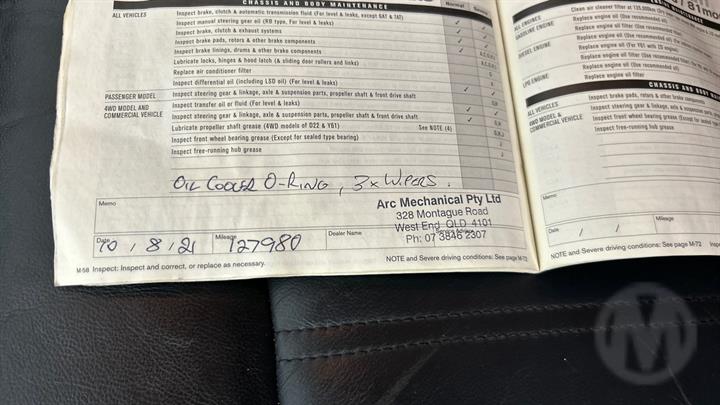 CHASSIS AND BODY MAINTENANCE
ALL VEHICLES
Normal
Inspect brake, clutch & automatic transmission fluid (For level & leaks, except SAT & 7AT)
Inspect manual steering gear oil (RB type, For level & leaks)
Inspect brake, clutch & exhaust systems
Inspect brake pads, rotors & other brake components
Inspect brake linings, drums & other brake components
Lubricate locks, hinges & hood latch (& sliding door rollers and links)
Replace air conditioner filter
Inspect differential oil (including LSD oil) (For level & leaks)
PASSENGER MODEL
Inspect steering gear & linkage, axle & suspension parts, propeller shaft & front drive shaft
4WD MODEL AND COMMERCIAL VEHICLE
Inspect transfer oil or fluid (For level & leaks)
Inspect steering gear & linkage, axle & suspension parts, propeller shaft & front drive shaft
Lubricate propeller shaft grease (4WD models of D22 & Y61) See NOTE (4)
Inspect front wheel bearing grease (Except for sealed type bearing)
Inspect free-running hub grease
OIL COOLER O-RING, 3x WIPERS.
Memo
Arc Mechanical Pty Ltd
328 Montague Road
West End QLD 4101
Ph: 07 3846 2307
Date 10 / 8 / 21 Mileage 127980 Dealer Name
M-58 Inspect: Inspect and correct, or replace as necessary.
NOTE and Severe driving conditions: See page M-72
ALL ENGINES
GASOLINE ENGINE
Replace engine oil (Use recommended oil)
Replace engine oil filter
DIESEL ENGINE
LPG ENGINE
Replace engine oil filter
CHASSIS AND BODY
ALL VEHICLES
Inspect brake pads, rotors & other brake components
4WD MODEL & COMMERCIAL VEHICLE
Inspect steering gear & linkage, axle & suspension
Inspect front wheel bearing grease (Except for sealed
Inspect free-running hub grease
Memo
Date / / Mileage
NOTE and Severe driving conditions: See page M-72
M